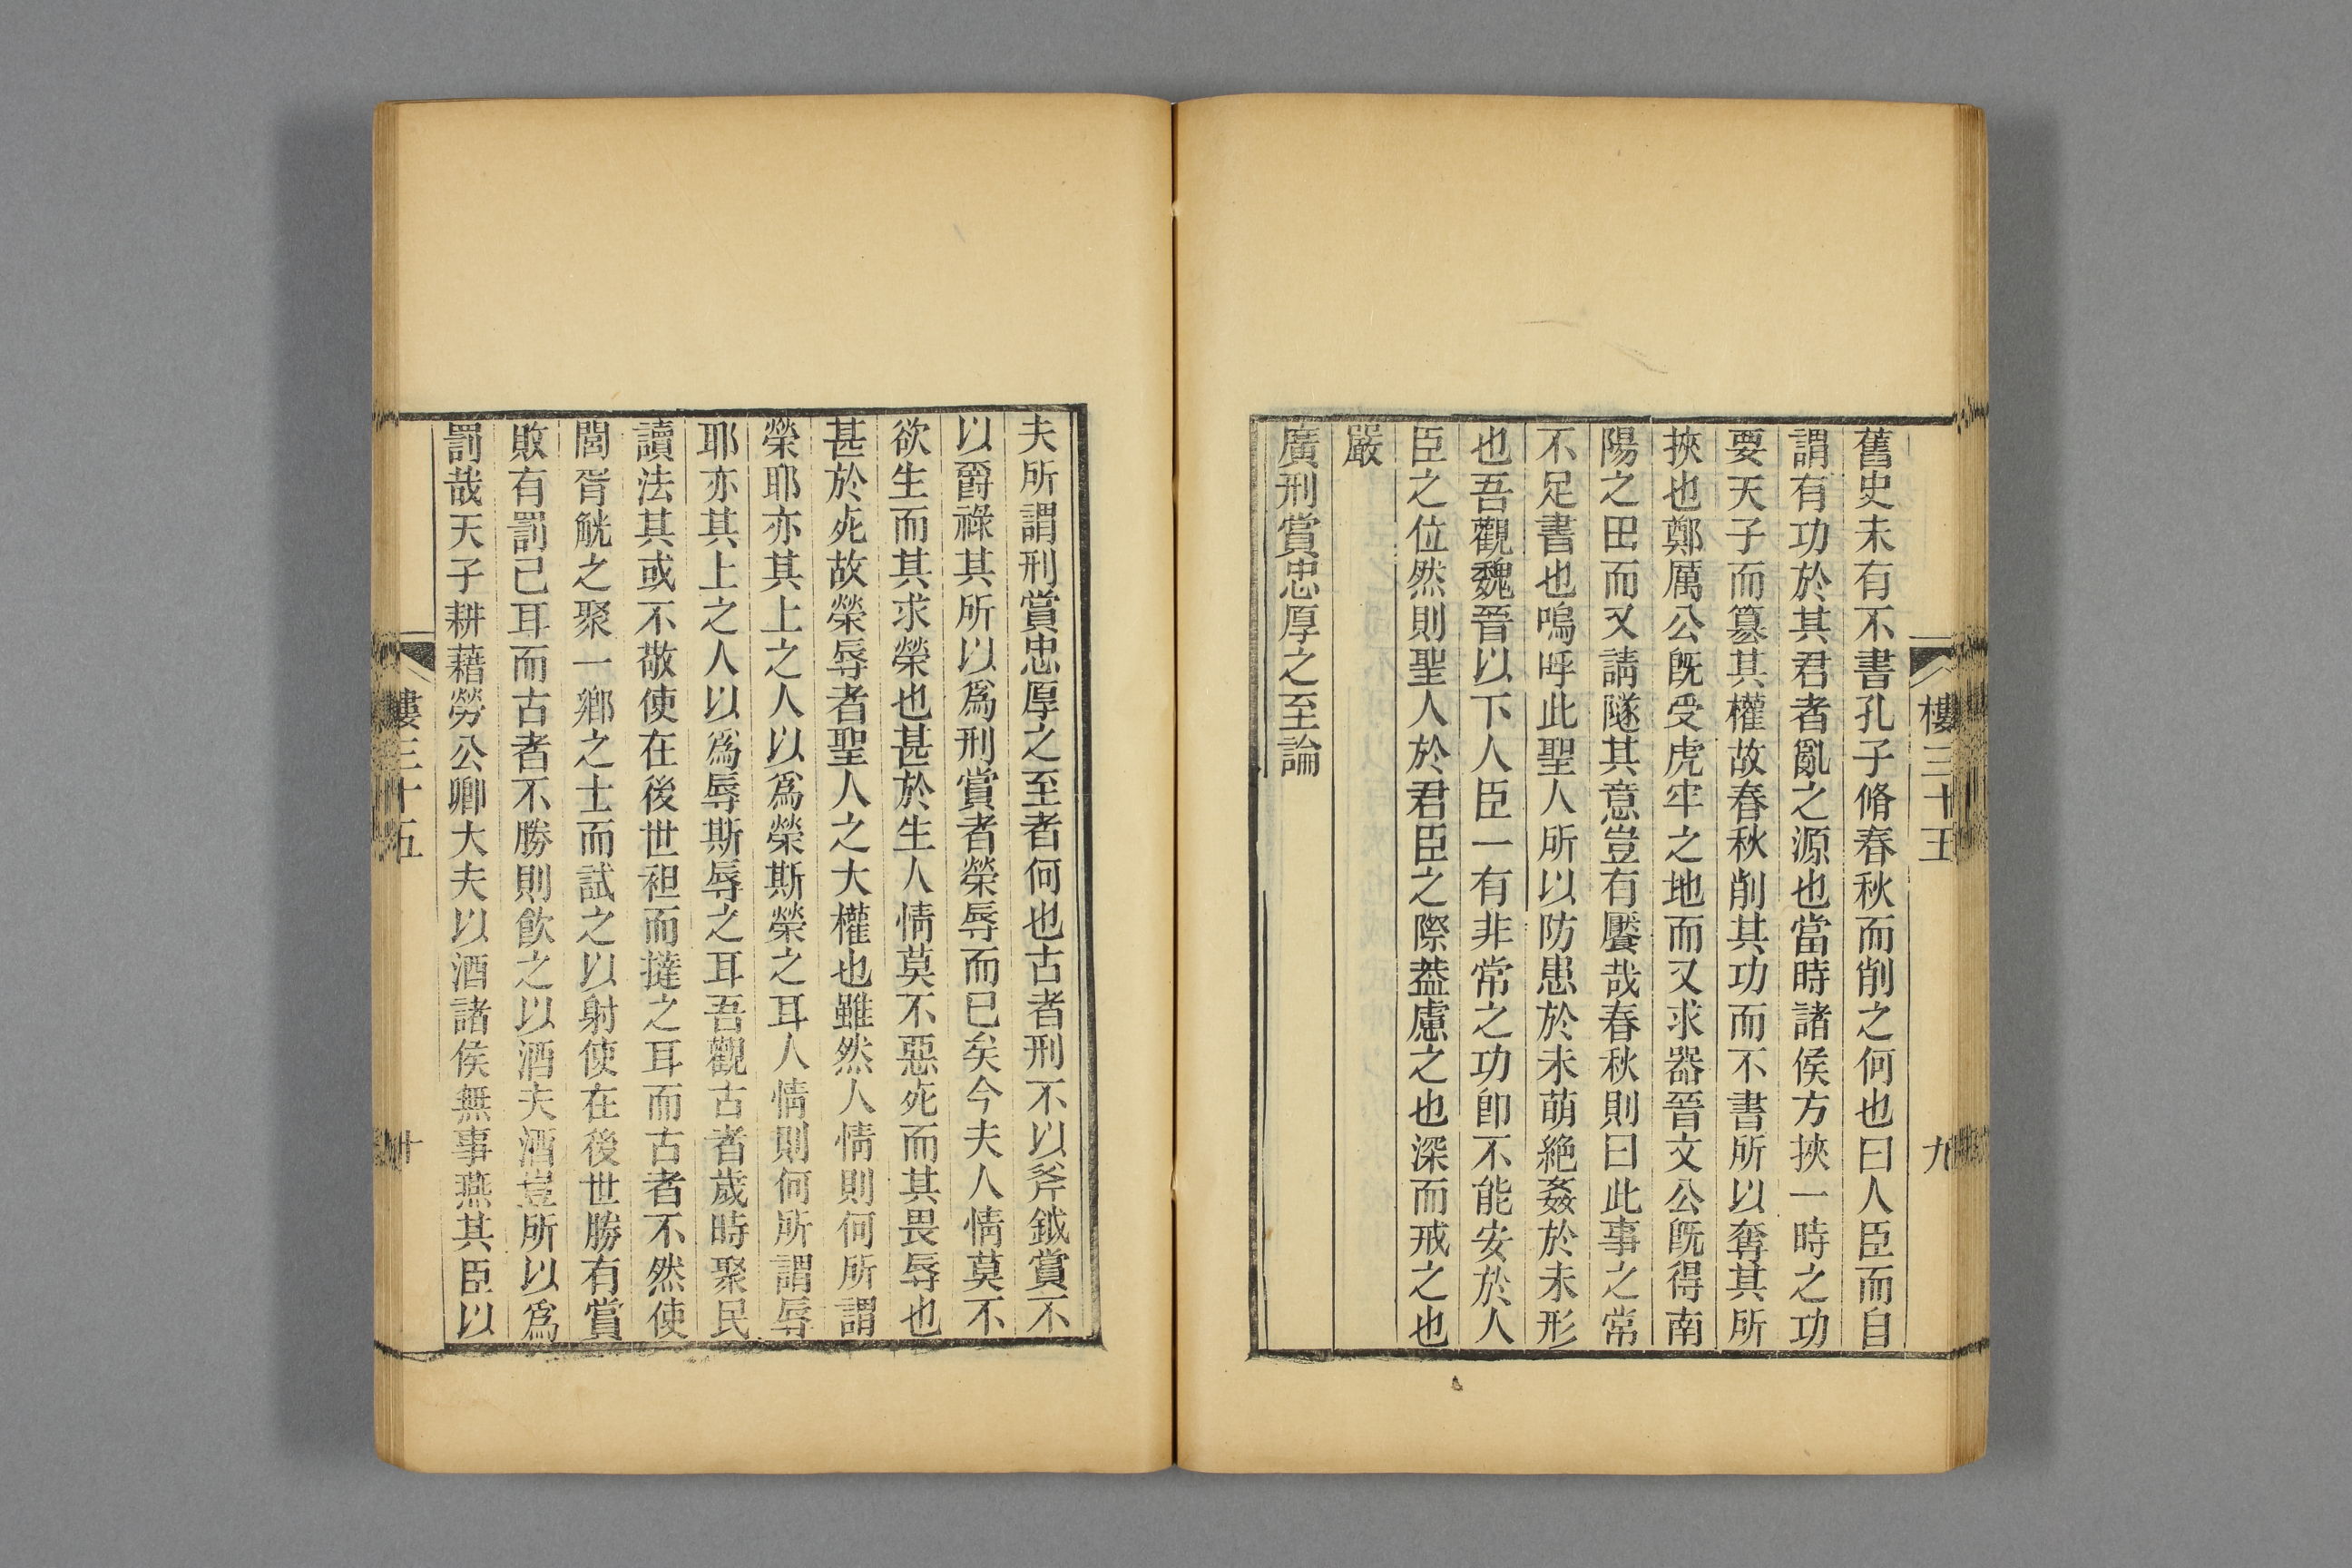 樓三十五
九
舊史未有不書孔子脩春秋而削之何也曰人臣而自
謂有功於其君者亂之源也當時諸侯方挾一時之功
要天子而簒其權故春秋削其功而不書所以奪其所
挾也鄭厲公旣受虎牢之地而又求器晉文公旣得南
陽之田而又請隧其意豈有饜哉春秋則曰此事之常
不足書也嗚呼此聖人所以防患於未萌絶姦於未形
也吾觀魏晉以下人臣一有非常之功卽不能安於人
臣之位然則聖人於君臣之際葢慮之也深而戒之也
嚴
廣刑賞忠厚之至論
夫所謂刑賞忠厚之至者何也古者刑不以斧鉞賞不
以爵祿其所以爲刑賞者榮辱而已矣今夫人情莫不
欲生而其求榮也甚於生人情莫不惡死而其畏辱也
甚於死故榮辱者聖人之大權也雖然人情則何所謂
榮耶亦其上之人以爲榮斯榮之耳人情則何所謂辱
耶亦其上之人以爲辱斯辱之耳吾觀古者歲時聚民
讀法其或不敬使在後世袒而撻之耳而古者不然使
閭胥觥之聚一鄉之士而試之以射使在後世勝有賞
敗有罰己耳而古者不勝則飲之以酒夫酒豈所以爲
罰哉天子耕藉勞公卿大夫以酒諸侯無事燕其臣以
樓三十五
十